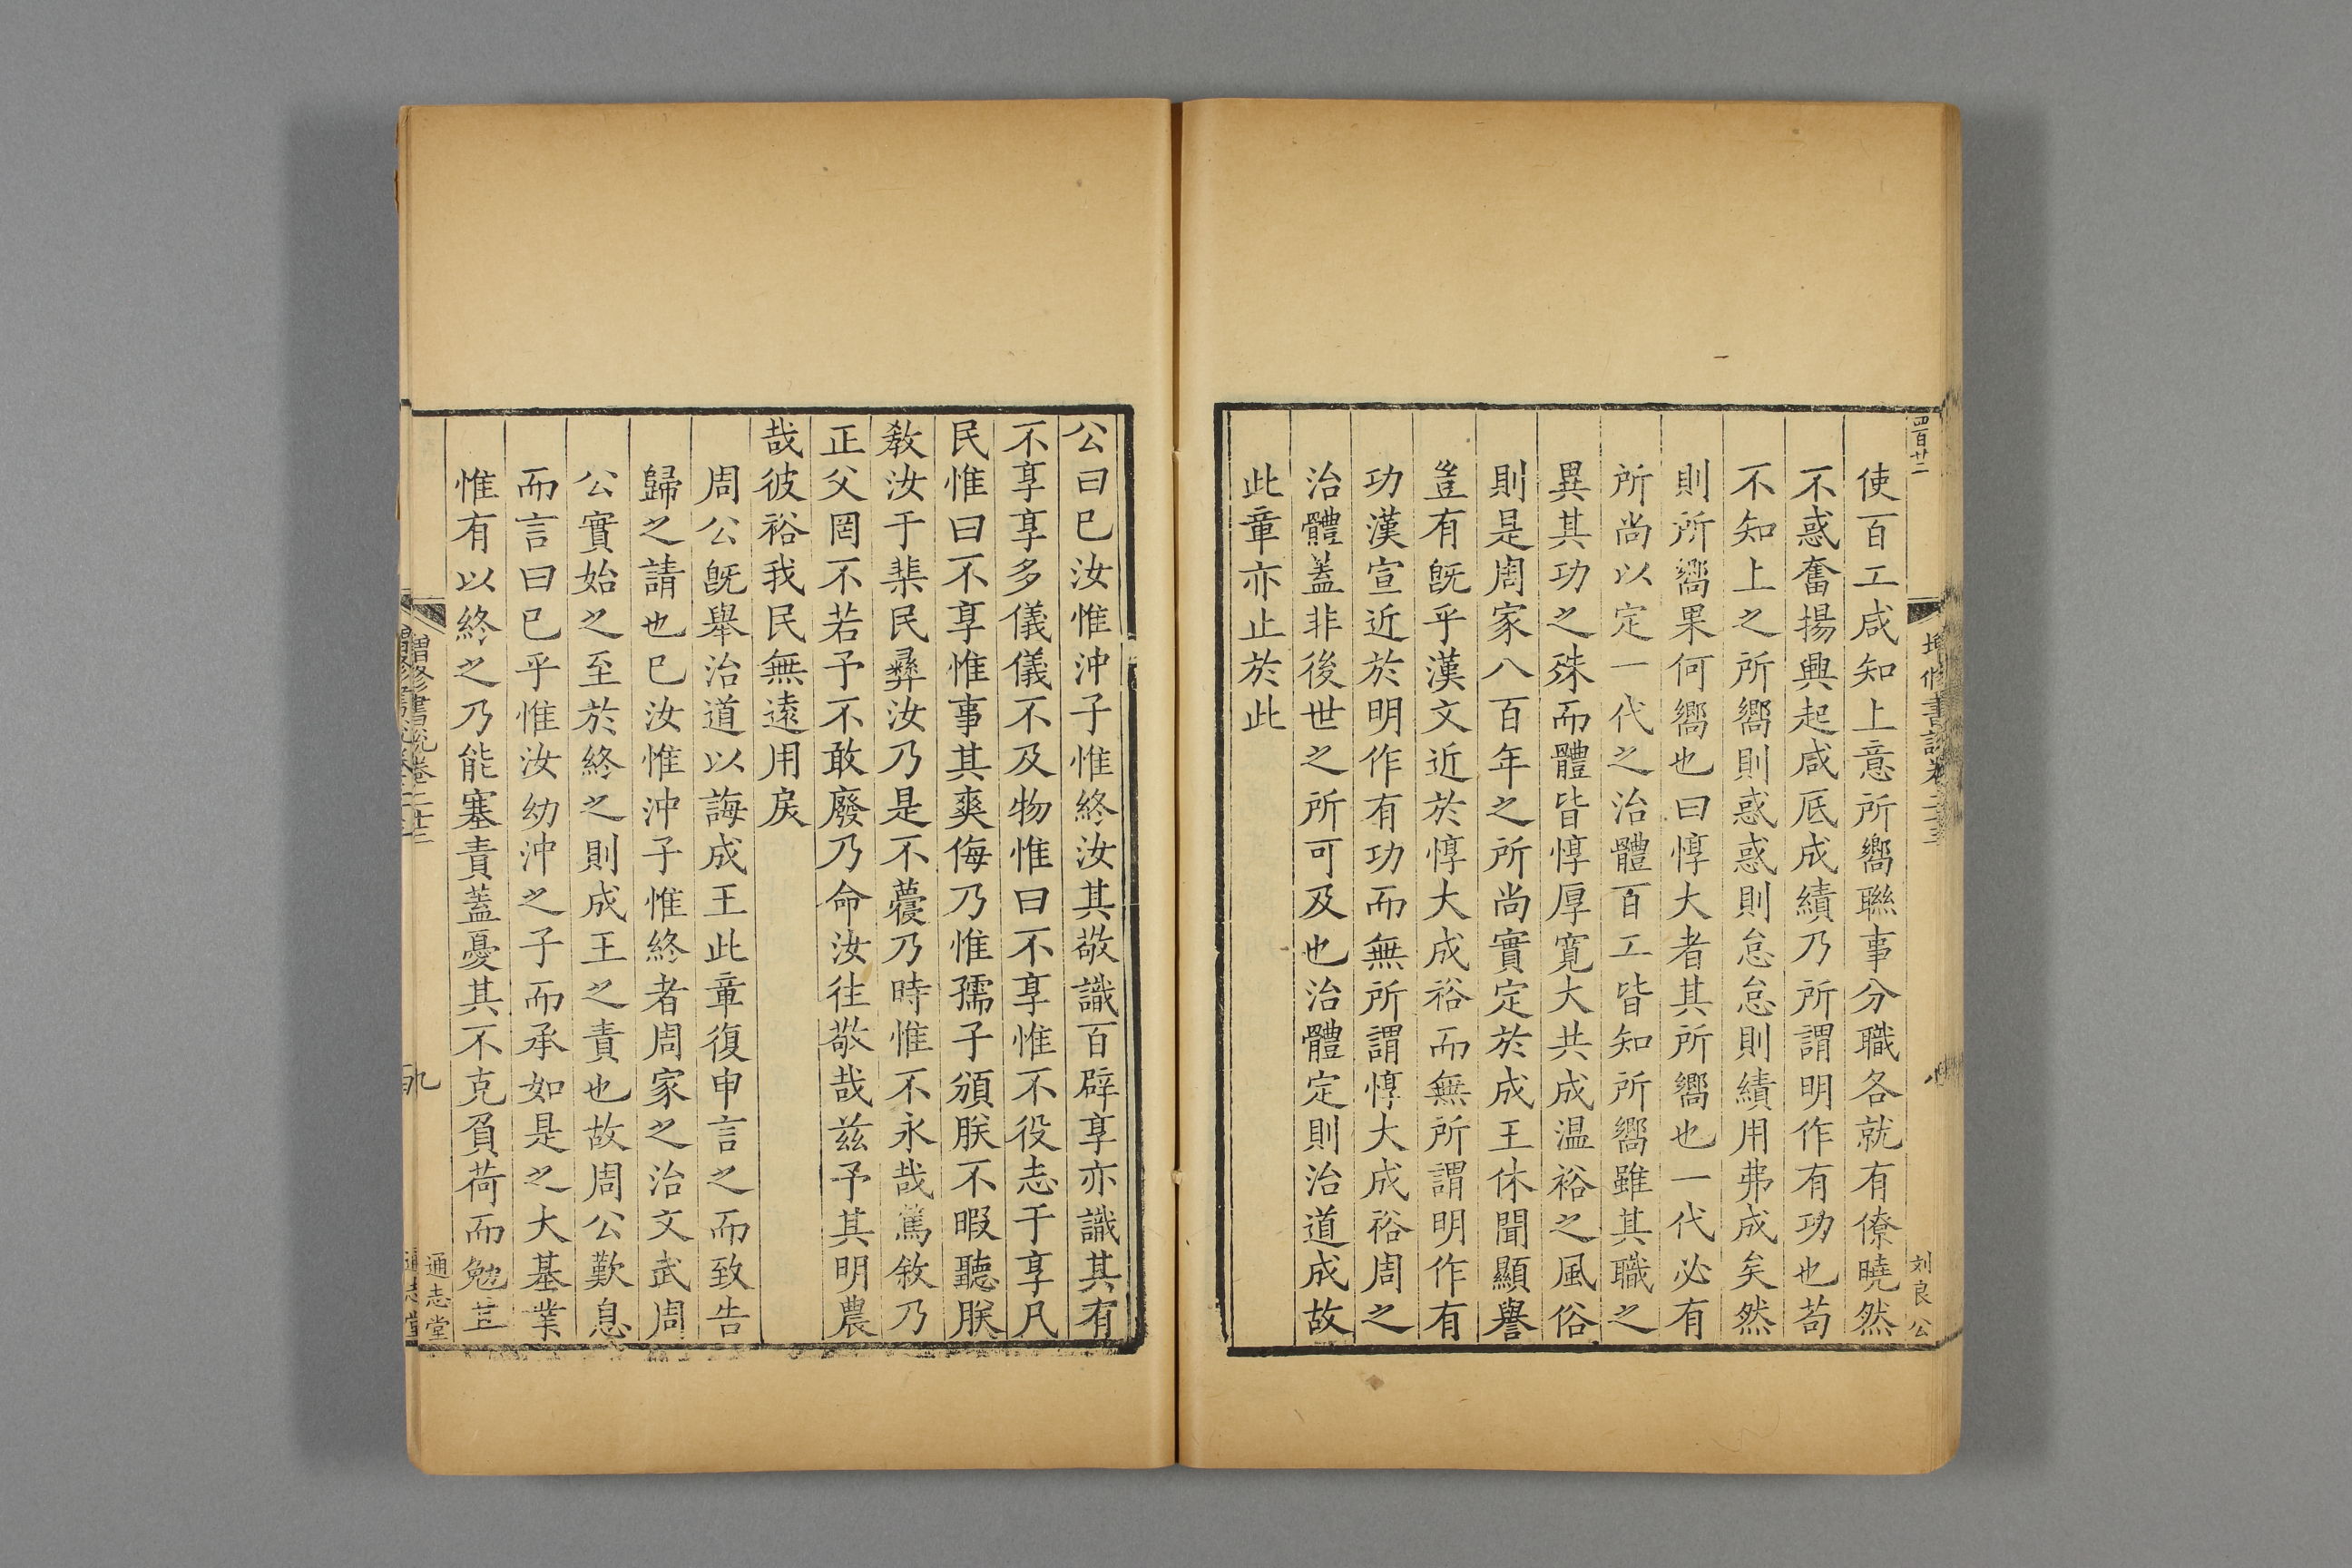 四百廿二
刘良公
使百工咸知上意所嚮聯事分職各就有僚曉然
不惑奮揚興起咸厎成績乃所謂明作有功也苟
不知上之所嚮則惑惑則怠怠則績用弗成矣然
則所嚮果何嚮也曰惇大者其所嚮也一代必有
所尚以定一代之治體百工皆知所嚮雖其職之
異其功之殊而體皆惇厚寬大共成温裕之風俗
則是周家八百年之所尚實定於成王休聞顯譽
豈有旣乎漢文近於惇大成裕而無所謂明作有
功漢宣近於明作有功而無所謂惇大成裕周之
治體蓋非後世之所可及也治體定則治道成故
此章亦止於此
公曰巳汝惟沖子惟終汝其敬識百辟享亦識其有
不享享多儀儀不及物惟曰不享惟不役志于享凡
民惟曰不享惟事其爽侮乃惟孺子頒朕不暇聽朕
敎汝于棐民彝汝乃是不蘉乃時惟不永哉篤敘乃
正父罔不若予不敢廢乃命汝往敬哉兹予其明農
哉彼裕我民無遠用戾
周公旣舉治道以誨成王此章復申言之而致告
歸之請也巳汝惟沖子惟終者周家之治文武周
公實始之至於終之則成王之責也故周公歎息
而言曰巳乎惟汝幼沖之子而承如是之大基業
惟有以終之乃能塞責蓋憂其不克負荷而勉㞢
增修書說卷二十三
九
通志堂